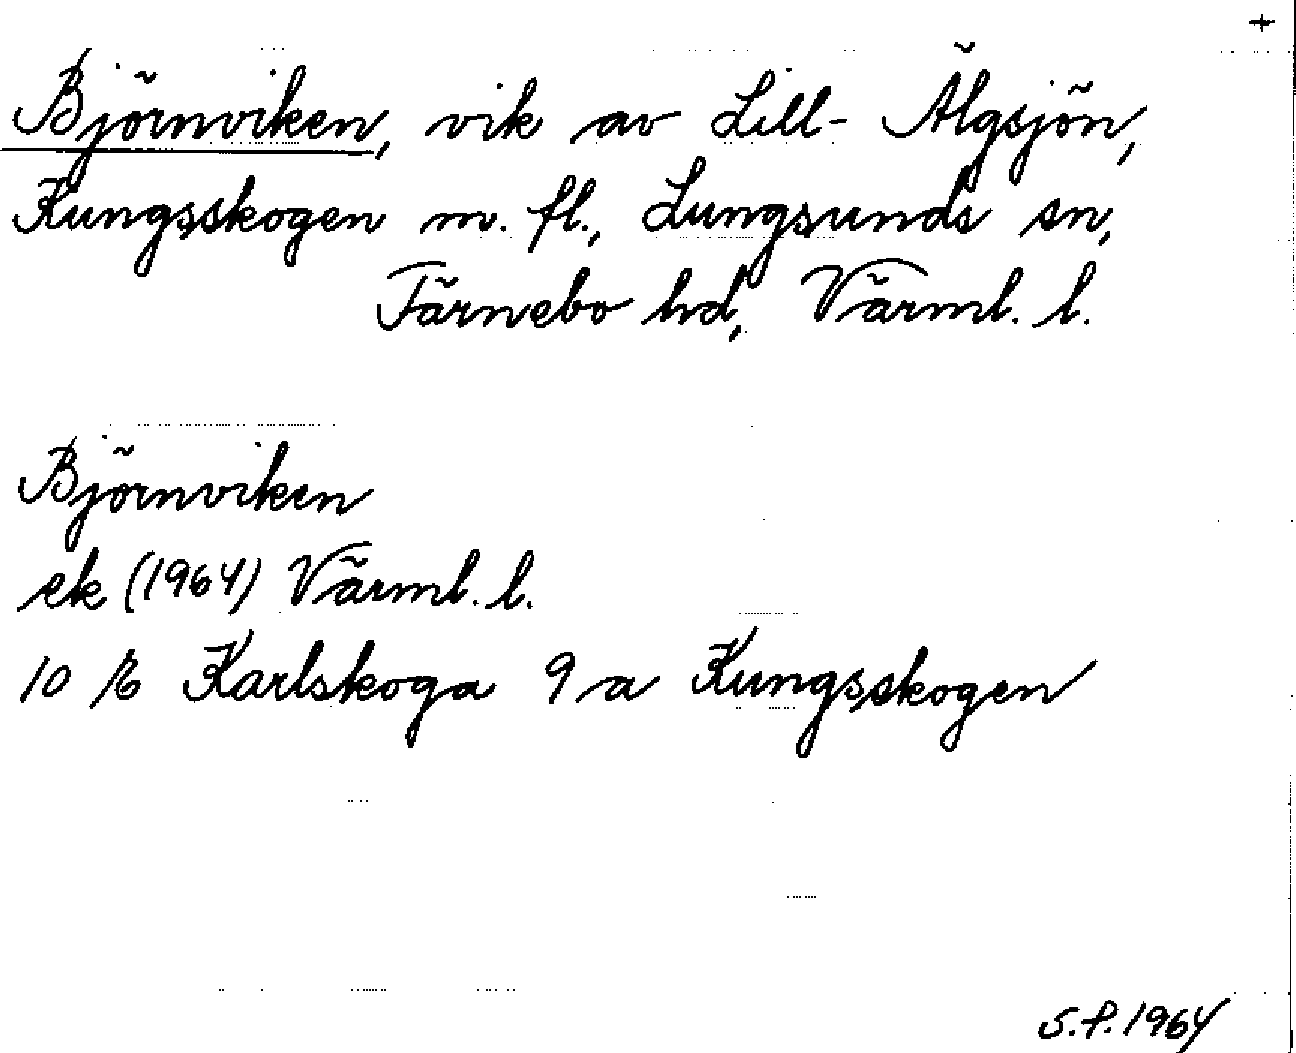 +
Björnviken, vik av Lill-Älgsjön,
Kungsskogen m. fl., Lungsunds sn,
Färnebo hd, Värml. l.
Björnviken
ek (1964) Värml. l.
10 E Karlskoga 9 a Kungsskogen
S.F. 1964